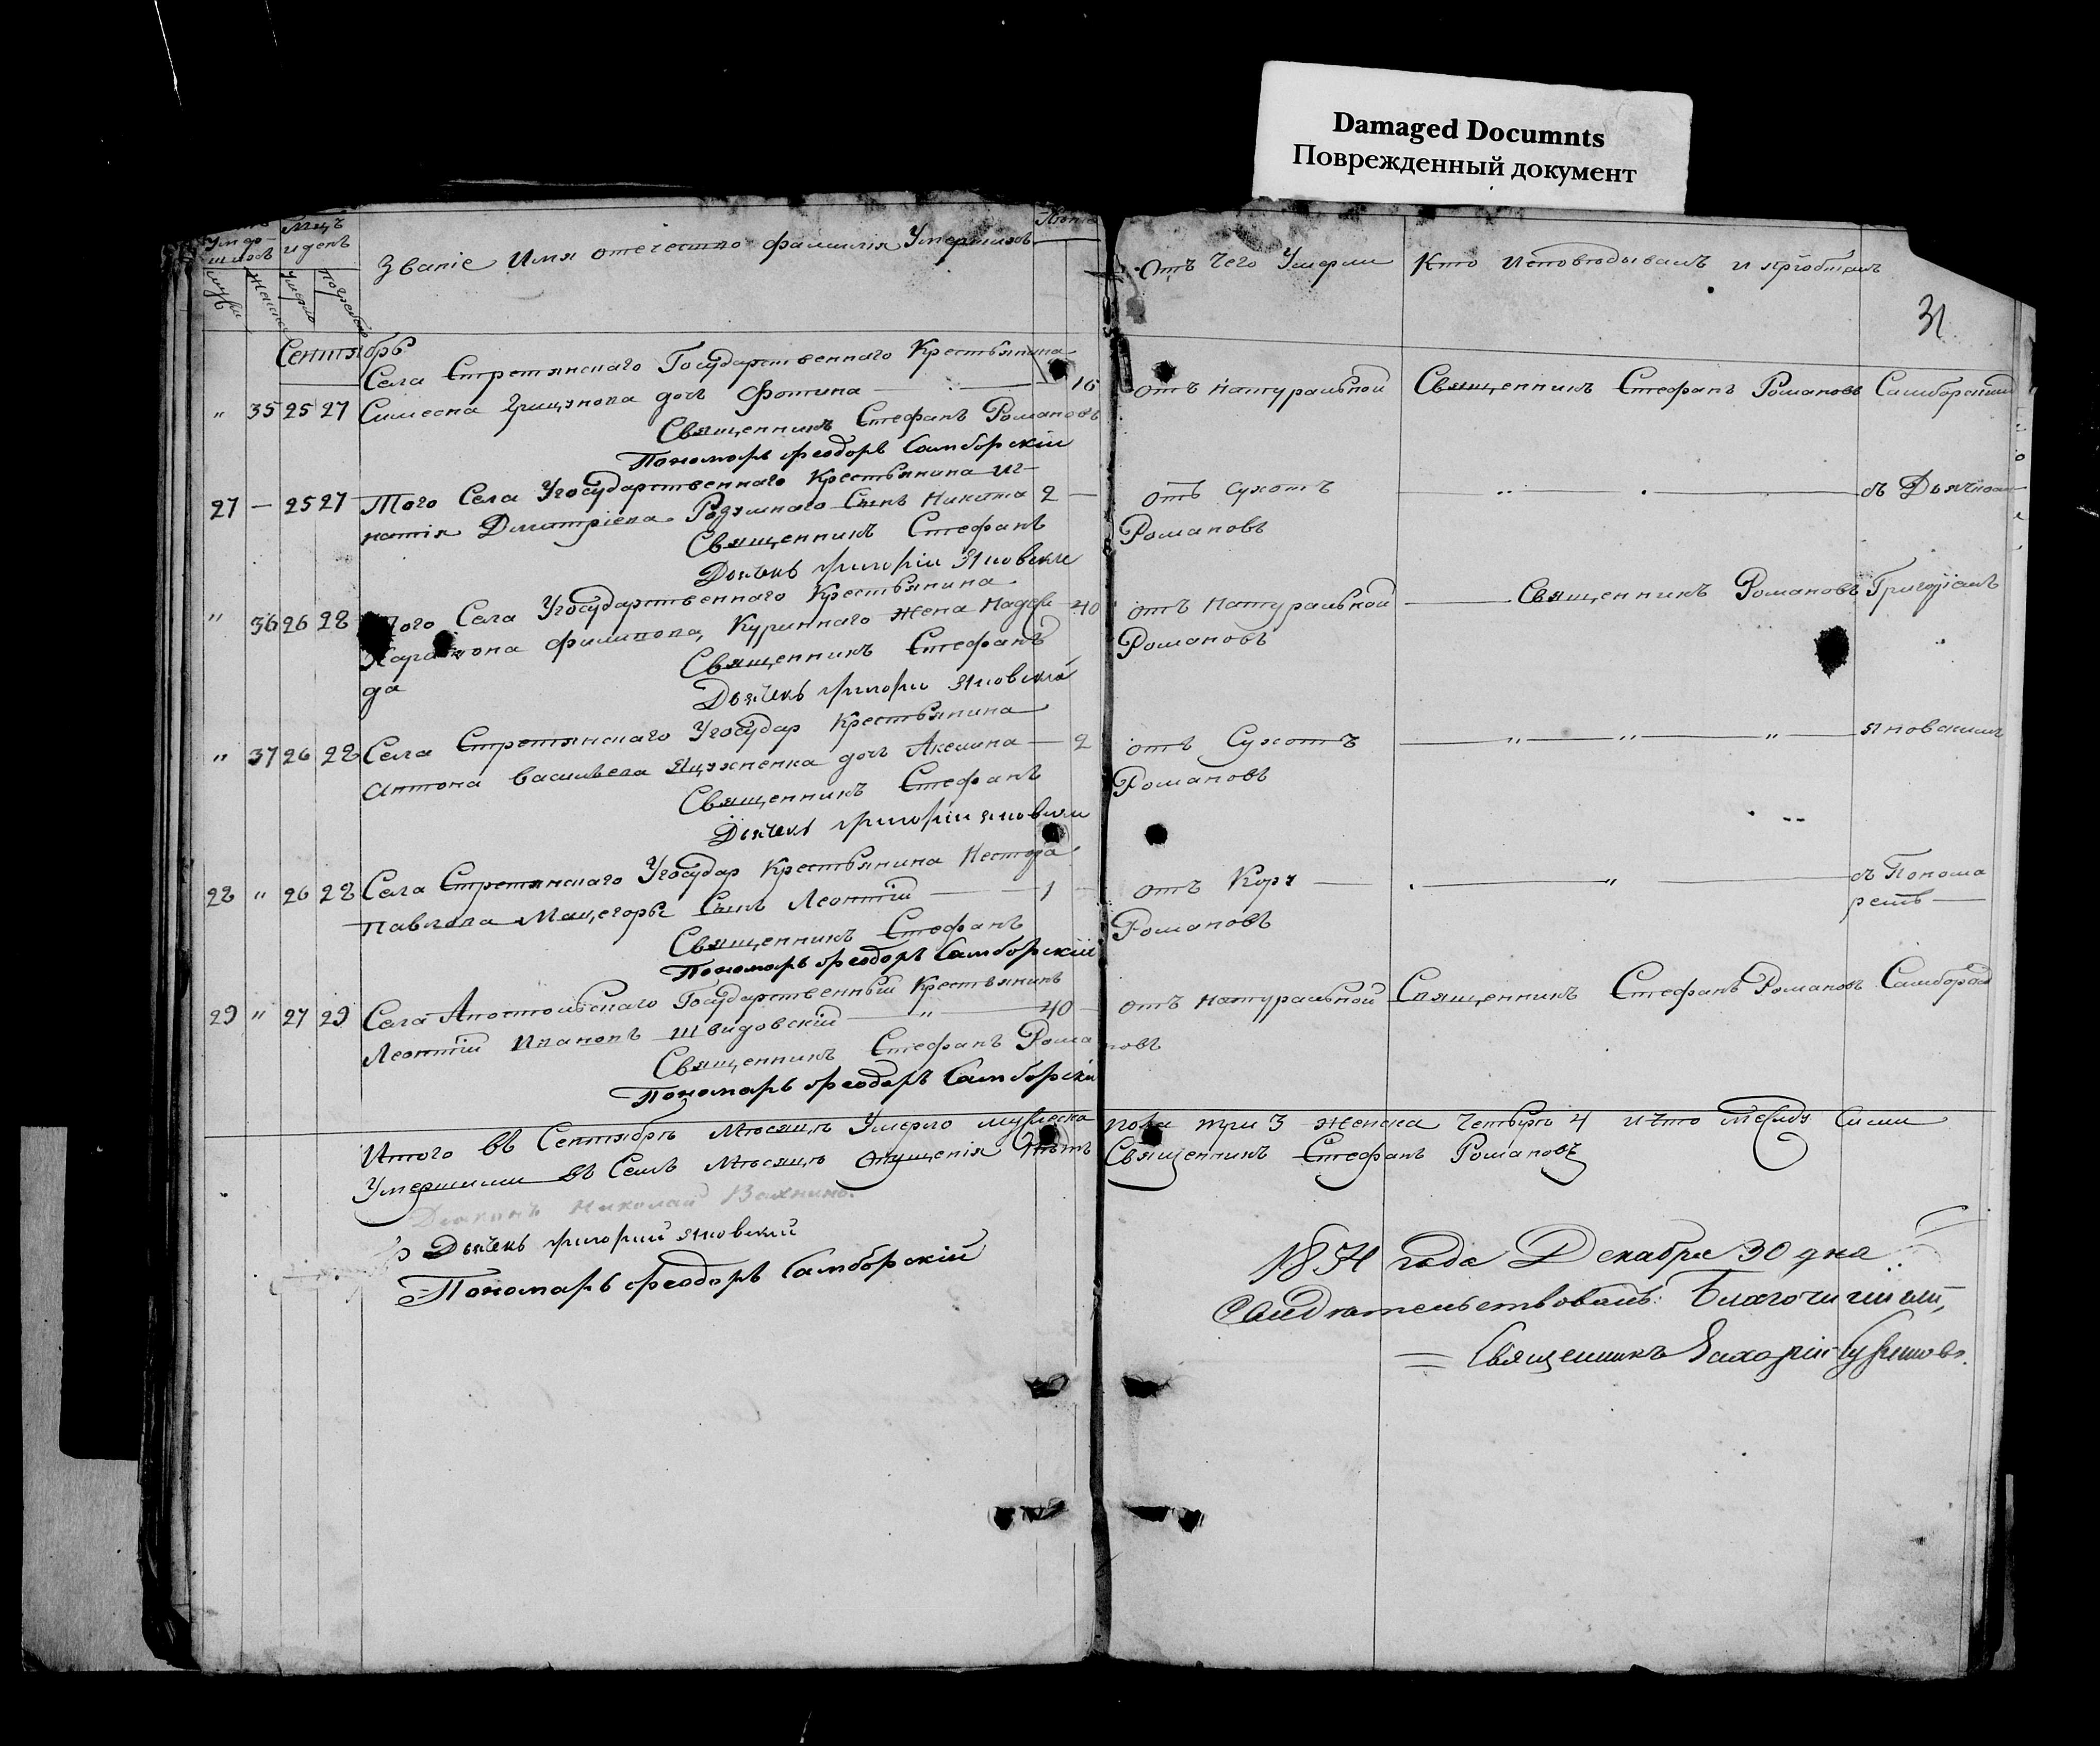 Damaged Documnts
Поврежденный документ
31
Умер-
шихъ
Мцъ
и день
Званіе Имя отечество фамилія Умершихъ
Лѣта
Отъ Чего Умерли
Кто Исповѣдывалъ и пріобщалъ
Сентябрь
Села Стретянскаго Государственнаго Крестьянина
" 35 25 27 Симеона дочь Фотина 16 отъ Натуральной Священникъ Стефанъ Романовъ Самборскимъ
Священникъ Стефанъ Романовъ
Пономарь Феодоръ Самборскій
Того Села Угосударственнаго Крестьянина Иг-
27 — 25 27 натія Димитріева Сынъ Никита 2 — отъ Сухотъ съ Дьячкомъ
Священникъ Стефанъ Романовъ
Дьячекъ Григорій Яновскій
Того Села Угосударственнаго Крестьянина
" 36 26 28 Филипова Куриннаго жена Надеж 40 отъ Натуральной Священникъ Романовъ Григоріемъ
да
Священникъ Стефанъ Романовъ
Дьячекъ Григорій Яновскій
Села Стретянскаго Угосудар Крестьянина
" 37 26 28 Антона Васильева дочь Аксинья — 2 отъ Сухотъ " " " Яновскимъ
Священникъ Стефанъ Романовъ
Дьячекъ Григорій Яновскій
Села Стретянскаго Угосудар Крестьянина Нестора
28 " 26 28 Павлова Мацегоры Сынъ Леонтій 1 отъ Кору " съ Понома
ремъ
Священникъ Стефанъ Романовъ
Пономарь Феодоръ Самборскій
Села Апостольскаго Государственный Крестьянинъ
29 " 27 29 Леонтій Ивановъ Швидовскій " 40 отъ Натуральной Священникъ Стефанъ Романовъ
Священникъ Стефанъ Романовъ
Пономарь Феодоръ Самборскій
Итого въ Сентябрѣ Мѣсяцѣ Умерло мужеска пола три 3 женска четыре 4 и что между Сими
Умершими въ Семъ Мѣсяцѣ Опущенія Нѣтъ Священникъ Стефанъ Романовъ
Діаконъ Николай
Дьячекъ Григорий Яновский
Пономарь Феодоръ Самборскій
года Декабря 30 дня
Свидѣтельствовалъ Благочинный,
Священникъ Захарій